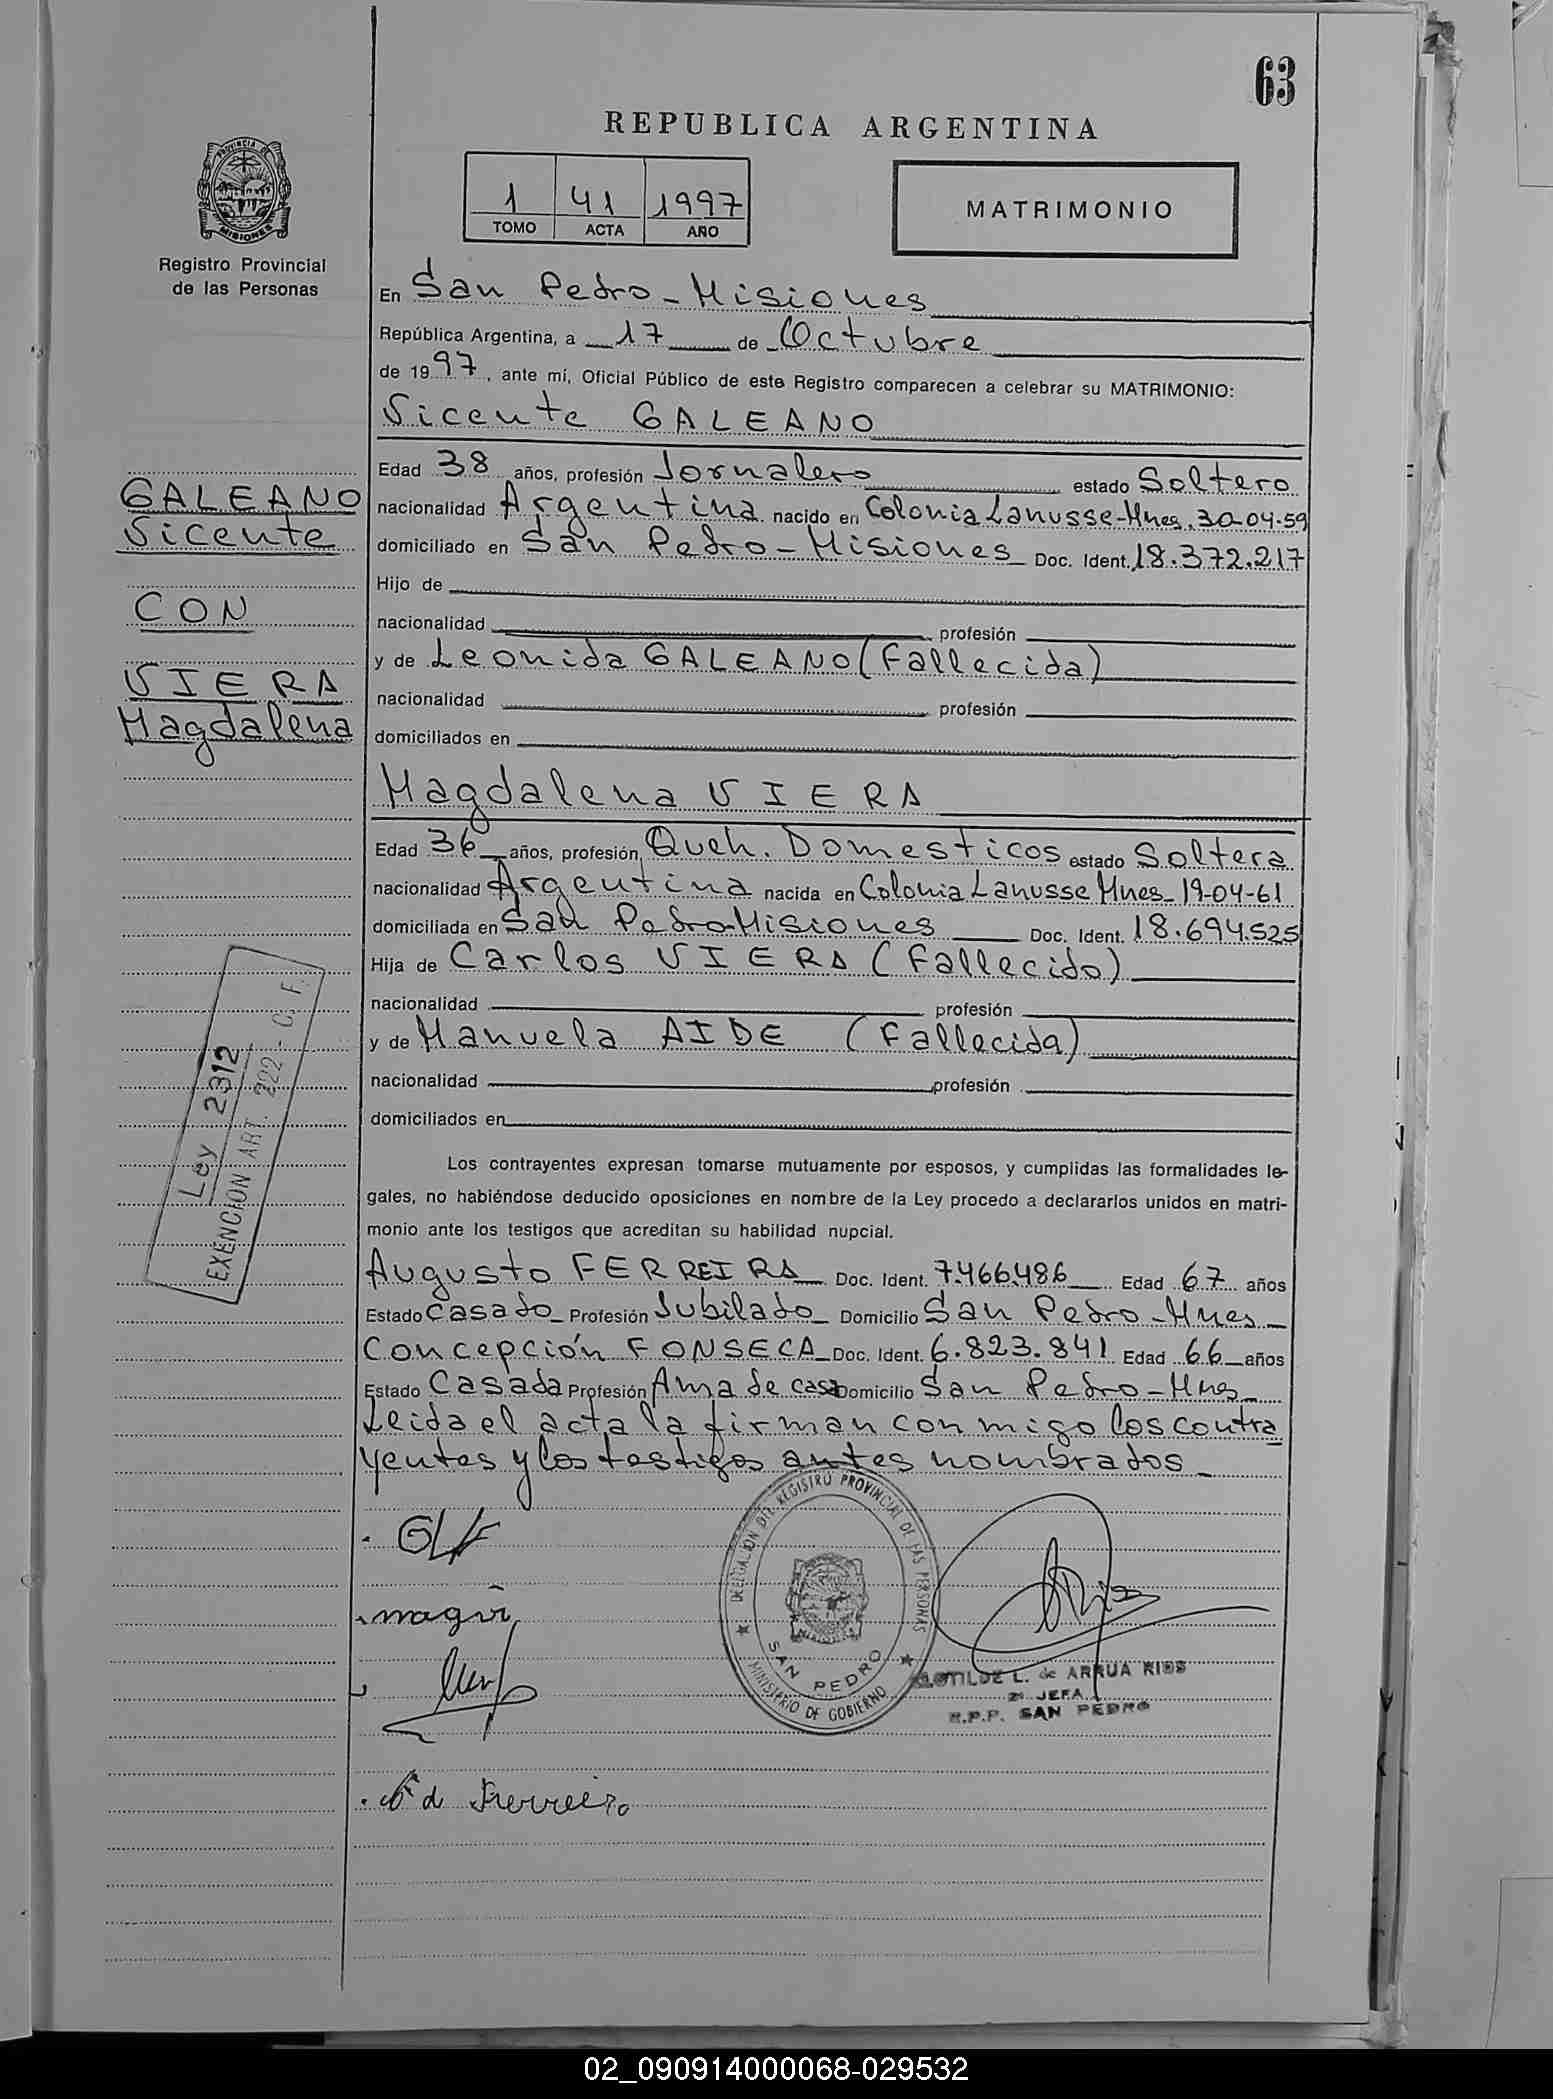 63
REPUBLICA ARGENTINA
1 41 1997
TOMO ACTA AÑO
MATRIMONIO
PROVINCIA DE
MISIONES
Registro Provincial
de las Personas
En San Pedro - Misiones
República Argentina, a 17 de Octubre
de 1997, ante mí, Oficial Público de este Registro comparecen a celebrar su MATRIMONIO:
Vicente GALEANO
Edad 38 años, profesión Jornalero estado Soltero
nacionalidad Argentina nacido en Colonia Lanusse-Mnes, 30-04-59
domiciliado en San Pedro - Misiones Doc. Ident. 18.372.217
Hijo de
nacionalidad profesión
y de Leonida GALEANO (Fallecida)
nacionalidad profesión
domiciliados en
GALEANO
Vicente
CON
VIERA
Magdalena
Magdalena VIERA
Edad 36 años, profesión Queh. Domesticos estado Soltera
nacionalidad Argentina nacida en Colonia Lanusse Mnes- 19-04-61
domiciliada en San Pedro-Misiones Doc. Ident. 18.694.525
Hija de Carlos VIERA (Fallecido)
nacionalidad profesión
y de Manuela AIDE (Fallecida)
nacionalidad profesión
domiciliados en
Ley 2312
EXENCION ART. 222 - C. F.
Los contrayentes expresan tomarse mutuamente por esposos, y cumplidas las formalidades le-
gales, no habiéndose deducido oposiciones en nombre de la Ley procedo a declararlos unidos en matri-
monio ante los testigos que acreditan su habilidad nupcial.
Augusto FERREIRA Doc. Ident. 7.466.486 Edad 67 años
Estado Casado Profesión Jubilado Domicilio San Pedro - Mnes -
Concepción FONSECA Doc. Ident. 6.823.841 Edad 66 años
Estado Casada Profesión Ama de casa Domicilio San Pedro - Mnes -
Leida el acta la firman con migo los contra
yentes y los testigos antes nombrados -
DELEGACION DIR. REGISTRO PROVINCIAL DE LAS PERSONAS
SAN PEDRO
MINISTERIO DE GOBIERNO
CLOTILDE L. de ARRUA RIOS
2ª JEFA
R.P.P. SAN PEDRO
de Ferreira
02_090914000068-029532